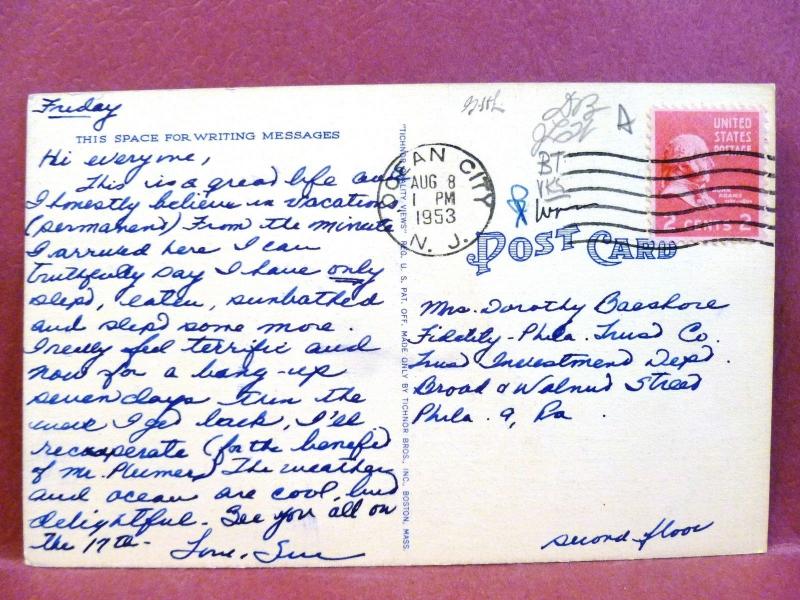 Friday
THIS SPACE FOR WRITING MESSAGES
Hi everyone,
This is a great life and
I honestly believe in vacation
(permanent) From the minute
I arrived here I can
truthfully say I have only
slept, eaten, sunbathed
and slept some more.
I really feel terrific and
now for a bang-up
seven days. Then the
week I get back, I'll
recooperate (for the benefit
of Mr. Plumer) The weather
and ocean are cool, but
delightful. See you all on
the 17th - Love, Sue
"TICHNOR QUALITY VIEWS" REG. U. S. PAT. OFF. MADE ONLY BY TICHNOR BROS., INC., BOSTON, MASS.
OCEAN CITY
AUG 8
1 PM
1953
N. J.
DB
A
BT
VKS
UNITED
STATES
POSTAGE
JOHN
ADAMS
2 CENTS 2
POST CARD
Mrs. Dorothy Baeshore
Fidelity-Phila. Trust Co.
Trust Investment Dept.
Broad & Walnut Street
Phila. 9, Pa.
second floor